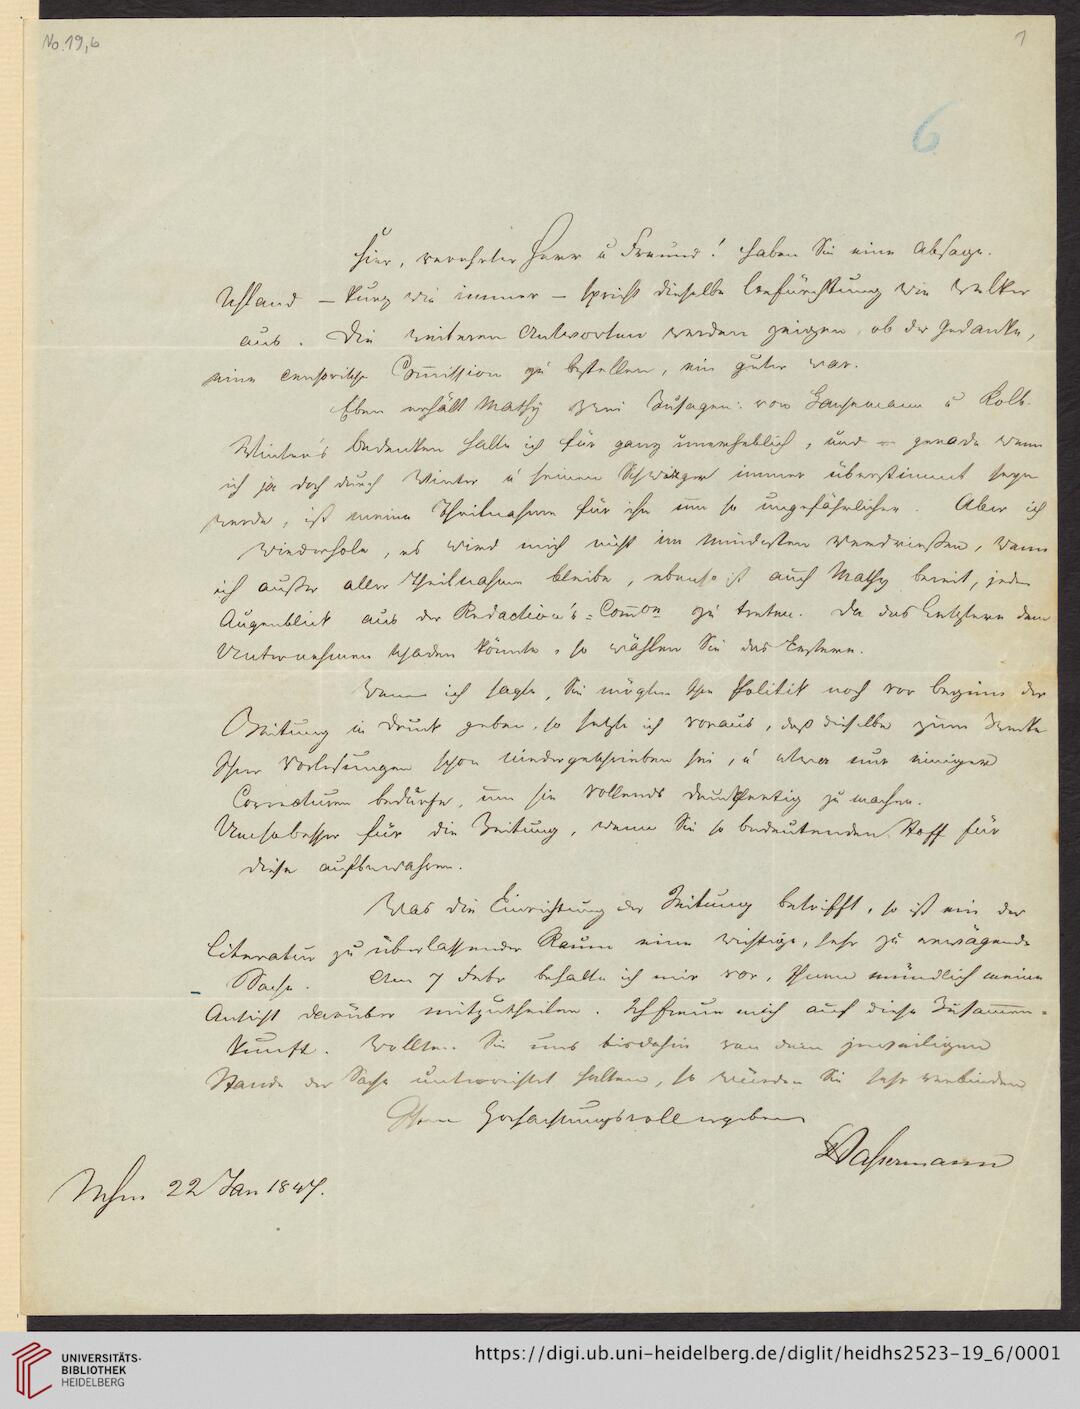 No. 19,6
1
6
Hier, verehrter Herr u Freund! haben Sie eine Absage.
Uhland – kurz wie immer – spricht dieselbe Befürchtung wie Welker
aus. Die weiteren Antworten werden zeigen, ob der Gedanke,
eine censorische Com̅ission zu bestellen, ein guter war.
Eben erhält Mathy zwei Zusagen: von Hansemann u Kolb.
Winter's Bedenken halte ich für ganz unerheblich, und gerade wenn
ich ja doch durch Winter u seinen Schwager immer überstimmt seyn
werde, ist meine Theilnahme für ihn um so ungefährlicher. Aber ich
wiederhole, es wird mich nicht im Mindesten verdrießen, wenn
ich außer aller Theilnahme bleibe, ebenso ist auch Mathy bereit, jeden
Augenblick aus der Redaction's-Com̅on zu treten. Da das Letztere dem
Unternehmen schaden könnte, so wählen Sie das Erstere.
Wenn ich sagte, Sie möchten Ihre Politik noch vor Beginn der
Zeitung in Druck geben, so setzte ich voraus, daß dieselbe zum Zwecke
Ihrer Vorlesungen schon niedergeschrieben sei, u etwa nur einiger
Correcturen bedürfe, um sie vollends druckfertig zu machen.
Umsobesser für die Zeitung, wenn Sie so bedeutenden Stoff für
diese aufbewahren.
Was die Einrichtung der Zeitung betrifft, so ist ein der
Literatur zu überlassender Raum eine wichtige, sehr zu erwägende
Sache. Am 7 Febr behalte ich mir vor, Ihnen mündlich meine
Ansicht darüber mitzutheilen. Ich freue mich auf diese Zusam̅en-
kunft. Wollten Sie uns bis dahin von dem jeweiligen
Stande der Sache unterrichtet halten, so würden Sie sehr verbinden
Ihren Hochachtungsvoll ergebenen
Bassermann
Mhm 22 Jan 1847.
UNIVERSITÄTS-
BIBLIOTHEK
HEIDELBERG
https://digi.ub.uni-heidelberg.de/diglit/heidhs2523-19_6/0001